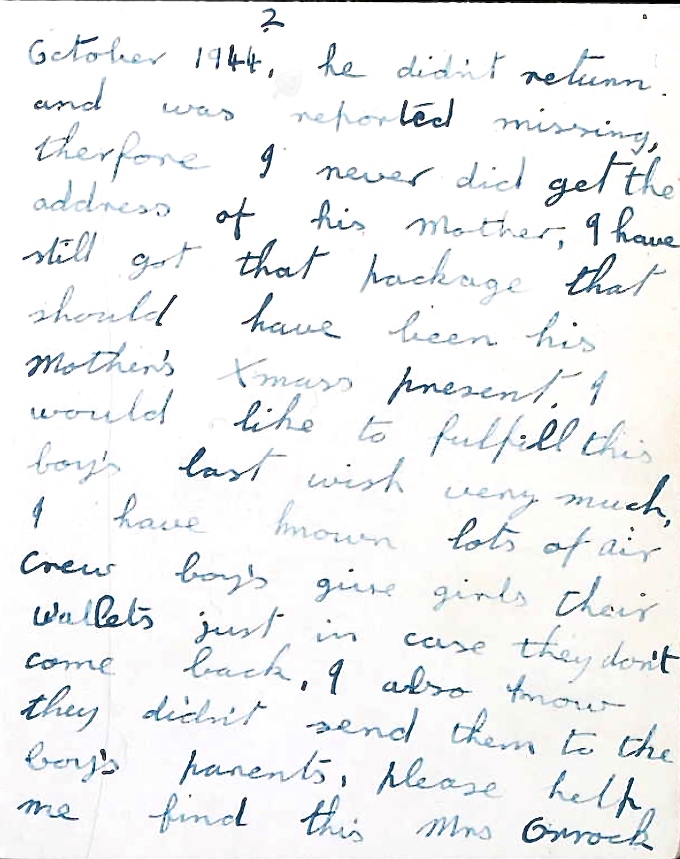 2
October 1944, he didn't return.
and was reported missing,
therfore I never did get the
address of his Mother, I have
still got that package that
should have been his
Mother's Xmass present. I
would like to fulfill this
boy's last wish very much,
I have known lots of air
crew boy's give girls their
wallets just in case they don't
come back, I also know
they didn't send them to the
boy's parents, please help
me find this Mrs Orrock